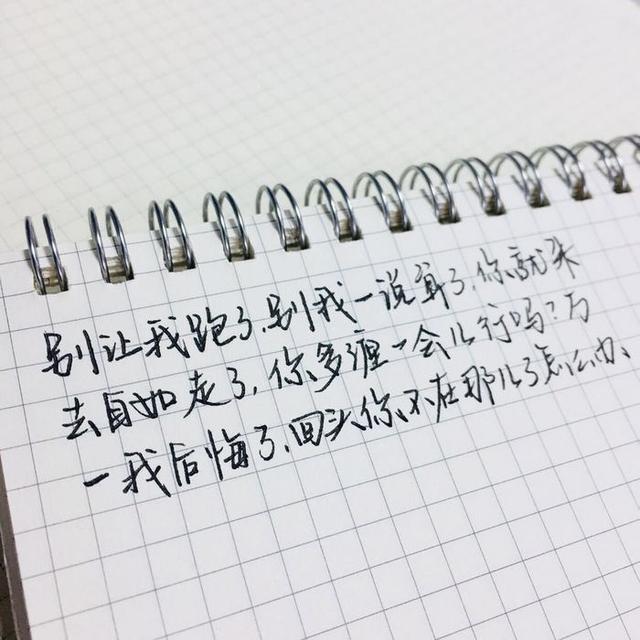 别让我跑了.别我一说算了.你就来
去自如走了.你多缠一会儿行吗?万
一我后悔了.回头你不在那儿了怎么办.